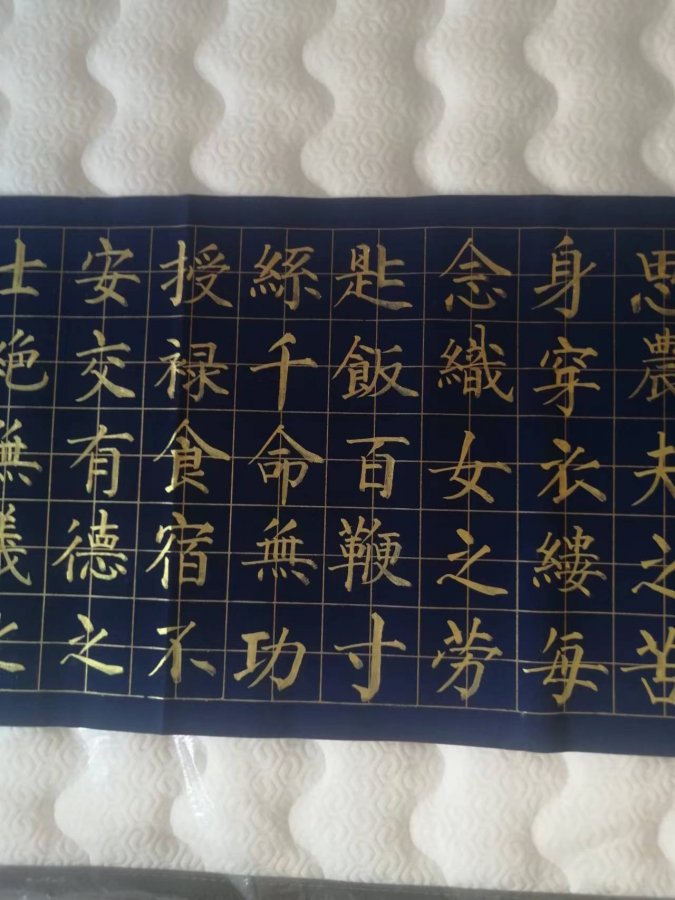 思農夫之苦
身穿衣縷每
念織女之勞
匙飯百鞭寸
絲千命無功
授禄食宿不
安交有德之
士絶無義之